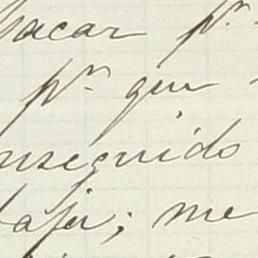 sacar p.r
p.r que
nseguido
baja; me